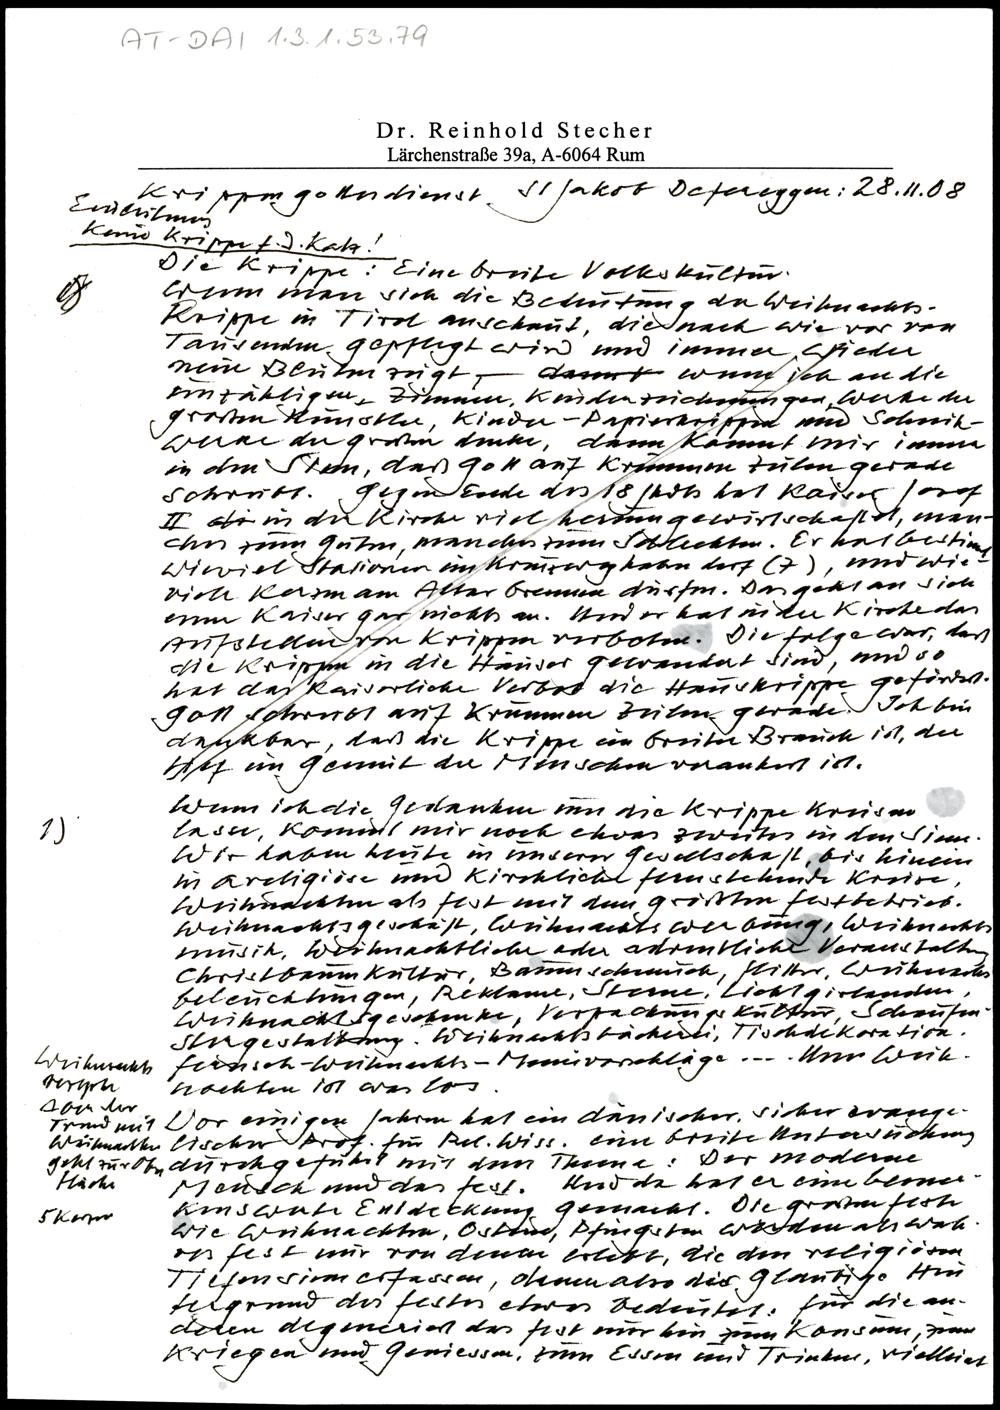 AT-DAI 1.3.1.53.79
Dr. Reinhold Stecher
Lärchenstraße 39a, A-6064 Rum
Krippengottesdienst St Jakob Defereggen: 28.11.08
Einleitung
Keine Krippe f. d. Katz!
Die Krippe: Eine breite Volkskultur.
Wenn man sich die Bedeutung der Weihnachts-
Krippe in Tirol anschaut, die nach wie vor von
Tausenden gepflegt wird und immer wieder
neue Blüten zeigt, – wenn ich an die
unzähligen Zimmer, Kinderzeichnungen, Werke der
großen Künstler, Kinder-Papierkrippen und Schnitz-
werke der großen denke, dann kommt mir immer
in den Sinn, daß Gott auf krummen Zeilen gerade
schreibt. Gegen Ende des 18 Jhdts hat Kaiser Josef
II in der Kirche viel herumgewirtschaftet, man-
ches zum Guten, manches zum Schlechten. Er hat bestimmt
wieviel Stationen ein Kreuzweg haben darf (7), und wie-
viele Kerzen am Altar brennen dürfen. Das geht an sich
einen Kaiser gar nichts an. Und er hat in der Kirche das
Aufstellen von Krippen verboten. Die Folge war, daß
die Krippen in die Häuser gewandert sind, und so
hat das Kaiserliche Verbot die Hauskrippe gefördert.
Gott schreibt auf krummen Zeilen gerade. Ich bin
dankbar, daß die Krippe ein breiter Brauch ist, der
tief im Gemüt der Menschen verankert ist.
1) Wenn ich die Gedanken um die Krippe kreisen
lasse, kommt mir noch etwas zweites in den Sinn.
Wir haben heute in unserer Gesellschaft, bis hinein
in areligiöse und kirchliche fernstehende Kreise,
Weihnachten als Fest mit dem größten Festbetrieb.
Weihnachtsgeschäft, Weihnachtswerbung, Weihnachts
musik, Weihnachtliche oder adventliche Veranstaltung
Christbaumkultur, Baumschmuck, Flitter, Weihnachts
beleuchtungen, Reklame, Sterne, Lichtgirlanden,
Weihnachtsgeschenke, Verpackungskultur, Schaufen-
stergestaltung. Weihnachtsbäckerei, Tischdekoration.
Fernseh-Weihnachts-Menüvorschläge --- . Um Weih-
nachten ist was los.
Weihnachts
rezepte
Aber der
Trend mit
Weihnachten
geht zur Ober
fläche
5 Kerzen
Vor einigen Jahren hat ein dänischer, sicher evange-
lischer Prof. für Rel. Wiss. eine breite Untersuchung
durchgeführt mit dem Thema: Der moderne
Mensch und das Fest. Und da hat er eine bemer-
kenswerte Entdeckung gemacht. Die großen Feste
wie Weihnachten, Ostern, Pfingsten werden als wah-
res Fest nur von denen erlebt, die den religiösen
Tiefensinn erfassen, denen also der Gläubige Hin
tergrund des Festes etwas bedeutet. Für die an-
deren degeneriert das Fest nur hin zum Konsum, zum
Kriegen und Geniessen, zum Essen und Trinken, vielleicht